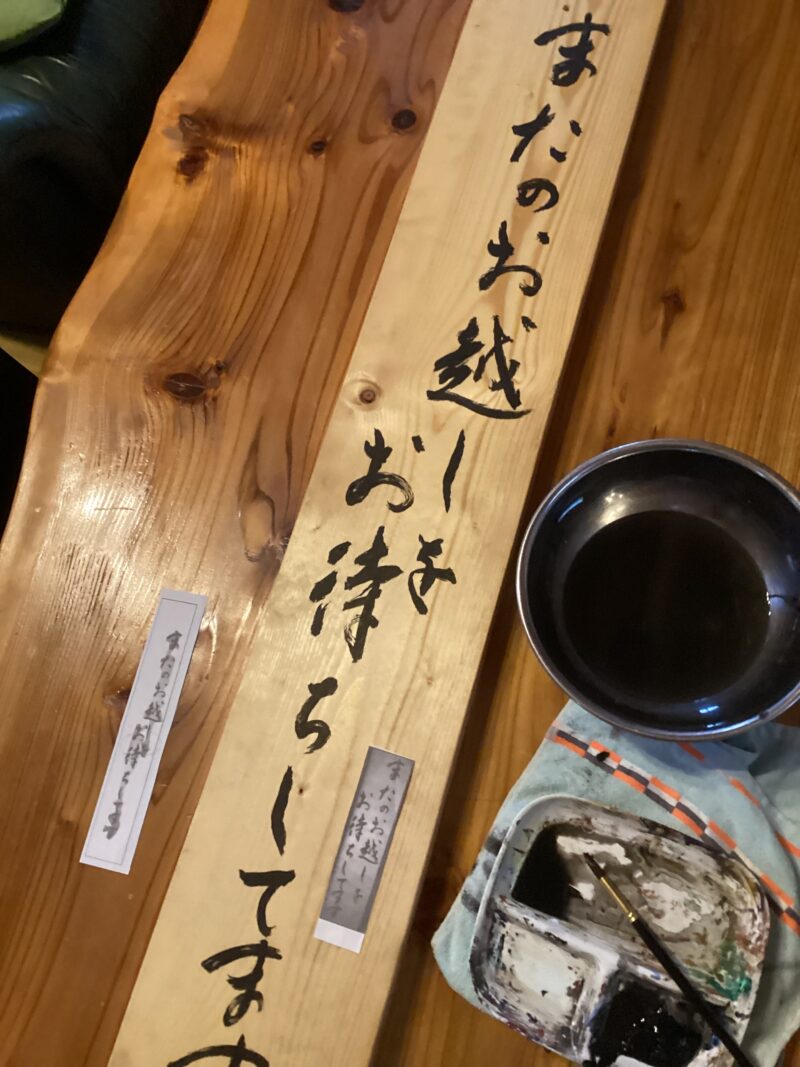 またのお越しを
お待ちしてます
またのお越しを
お待ちしてます
またのお越しを
お待ちしてます